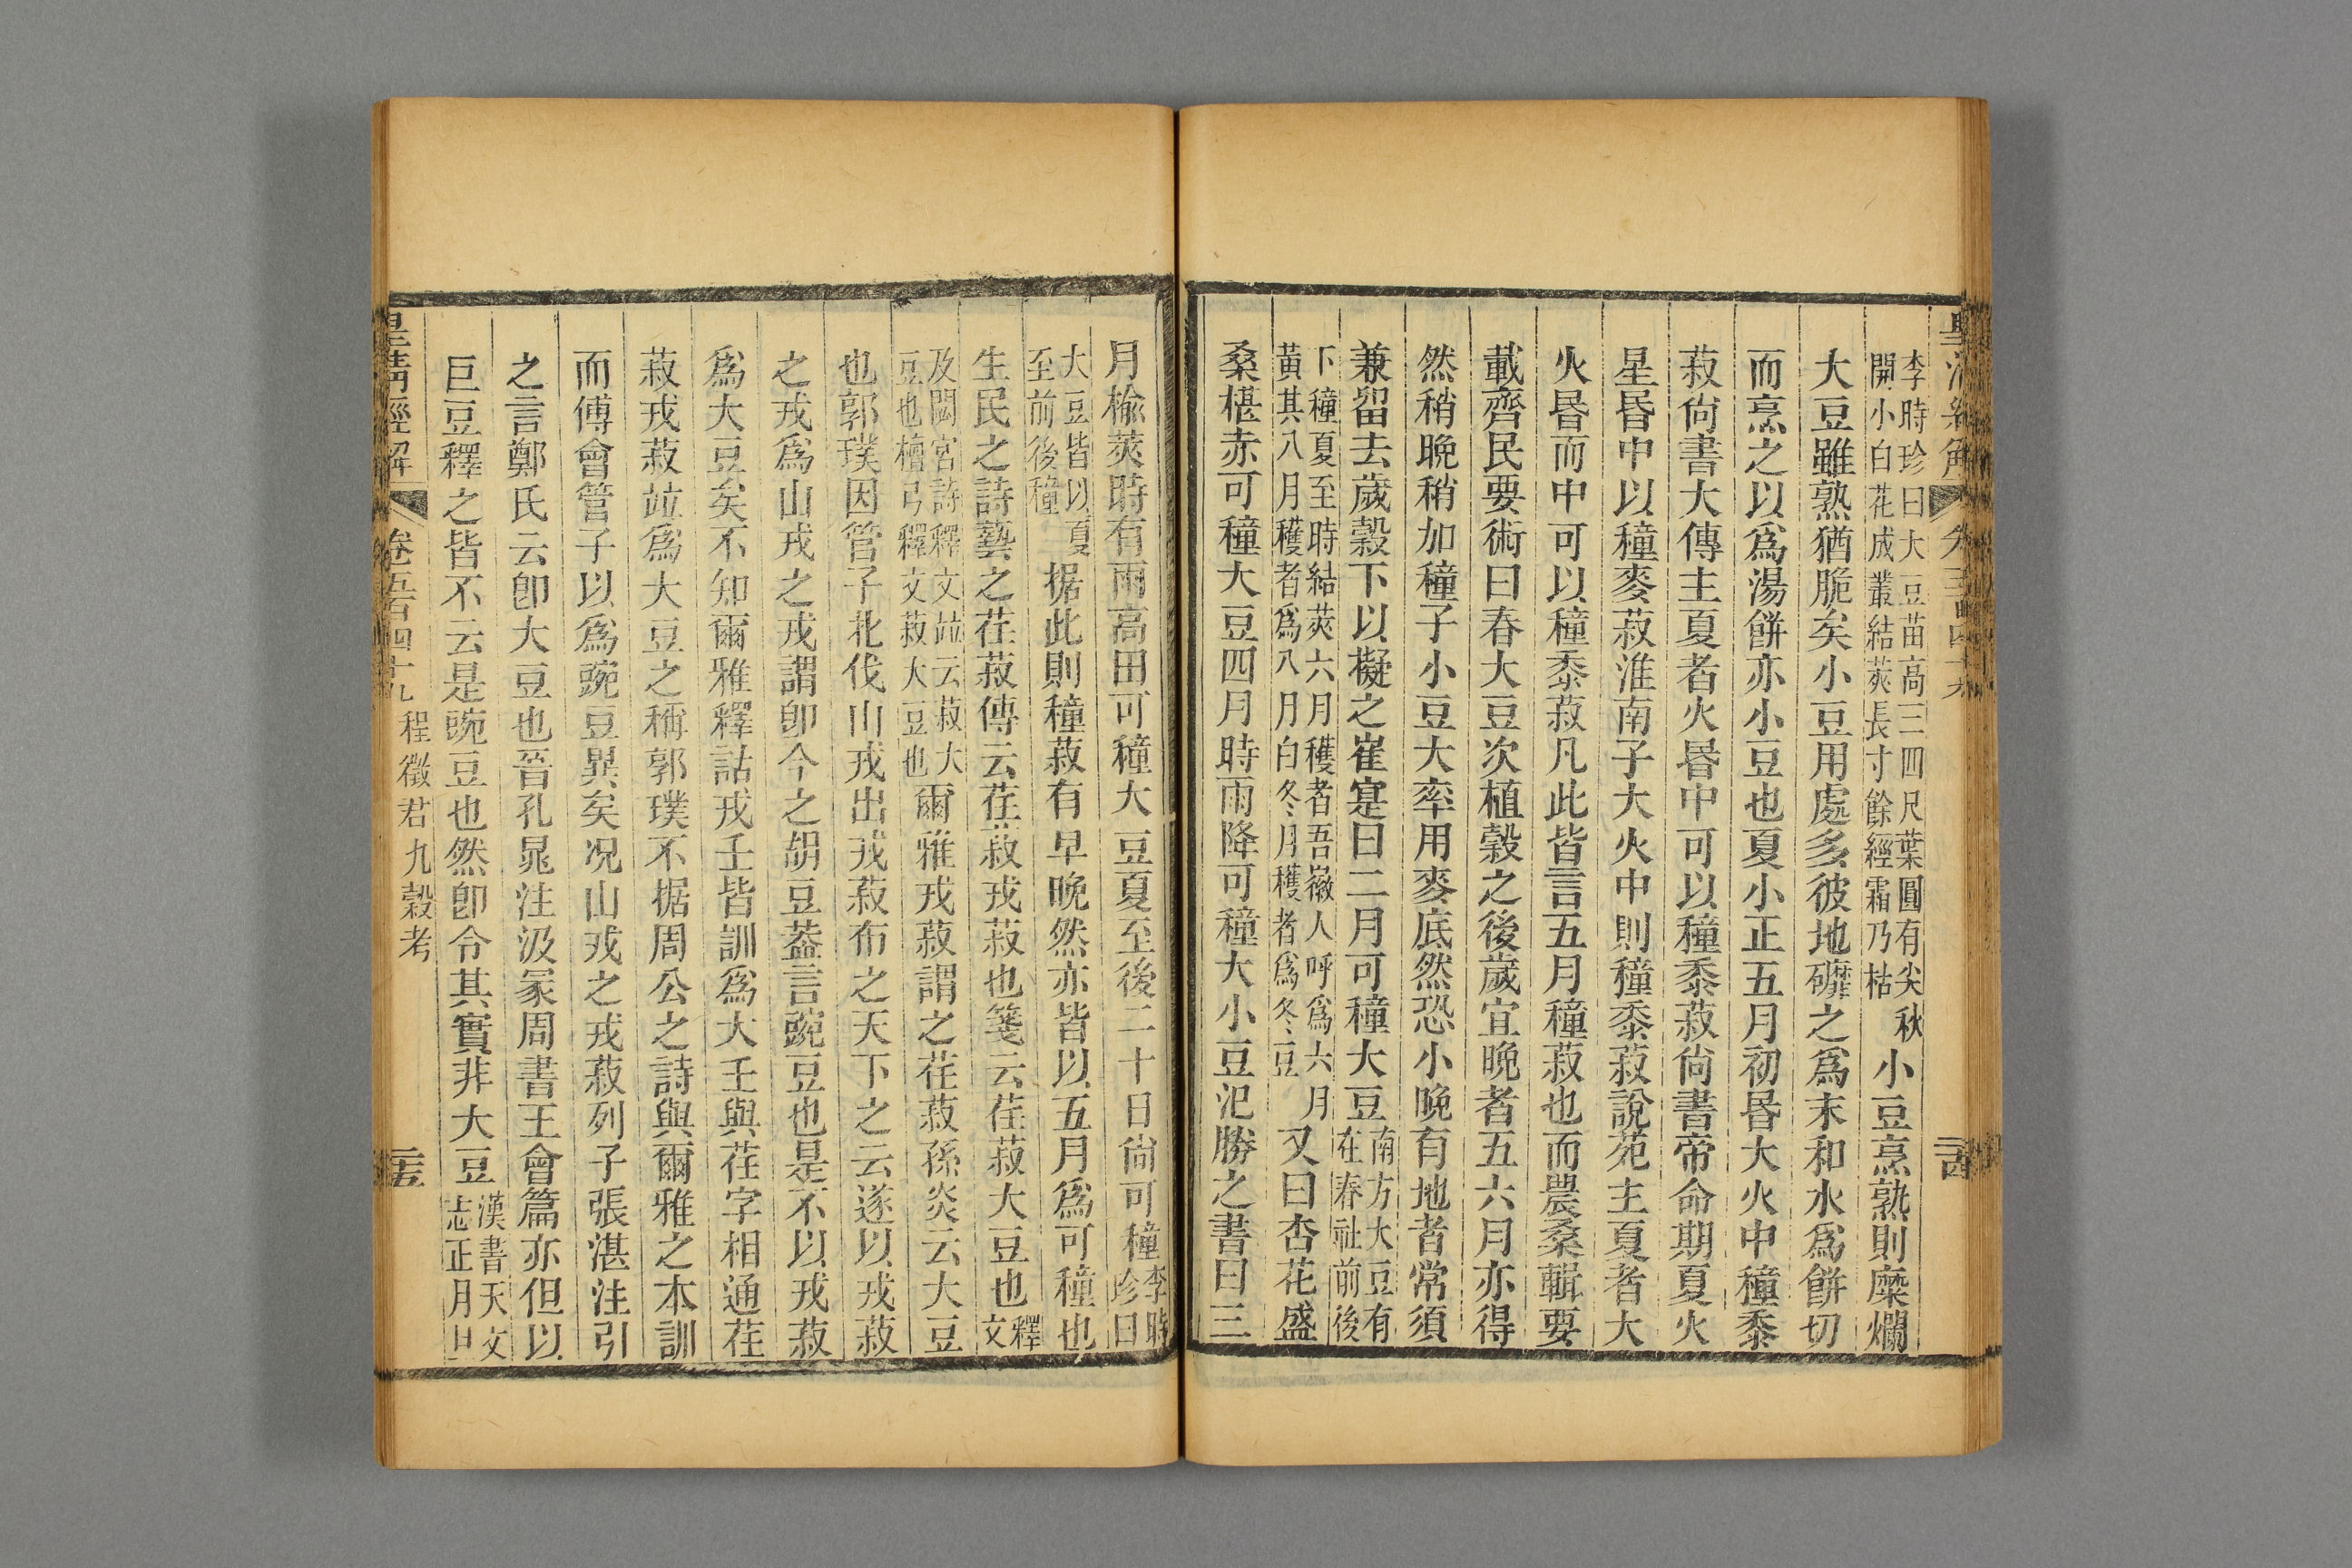 李時珍曰大豆苗高三四尺葉圓有尖秋
開小白花成叢結莢長寸餘經霜乃枯
小豆烹熟則糜爛
大豆雖熟猶脆矣小豆用處多彼地礳之爲末和水爲餅切
而烹之以爲湯餅亦小豆也夏小正五月初昏大火中穜黍
菽尙書大傳主夏者火昏中可以穜黍菽尙書帝命期夏火
星昏中以穜麥菽淮南子大火中則穜黍菽說苑主夏者大
火昏而中可以穜黍菽凡此皆言五月穜菽也而農桑輯要
載齊民要術曰春大豆次植穀之後歲宜晚者五六月亦得
然稍晚稍加穜子小豆大率用麥底然恐小晚有地者常須
兼留去歲穀下以擬之崔寔曰二月可穜大豆
南方大豆有
在春社前後
下穜夏至時結莢六月穫者吾徽人呼爲六月
黃其八月穫者爲八月白冬月穫者爲冬豆
又曰杏花盛
桑椹赤可穜大豆四月時雨降可穜大小豆氾勝之書曰三
皇清經解
卷五百四十九 程徵君九穀考
二十五
月楡莢時有雨高田可穜大豆夏至後二十日尙可穜
李時
珍曰
大豆皆以夏
至前後穜
据此則穜菽有早晚然亦皆以五月爲可穜也
生民之詩藝之荏菽傳云荏菽戎菽也箋云荏菽大豆也
釋
文
及閟宮詩釋文竝云菽大
豆也檀弓釋文菽大豆也
爾雅戎菽謂之荏菽孫炎云大豆
也郭璞因管子北伐山戎出戎菽布之天下之云遂以戎菽
之戎爲山戎之戎謂卽今之胡豆葢言豌豆也是不以戎菽
爲大豆矣不知爾雅釋詁戎壬皆訓爲大壬與荏字相通荏
菽戎菽竝爲大豆之稱郭璞不据周公之詩與爾雅之本訓
而傅會管子以爲豌豆異矣况山戎之戎菽列子張湛注引
之言鄭氏云卽大豆也晉孔晁注汲冢周書王會篇亦但以
巨豆釋之皆不云是豌豆也然卽令其實非大豆
漢書天文
志正月旦